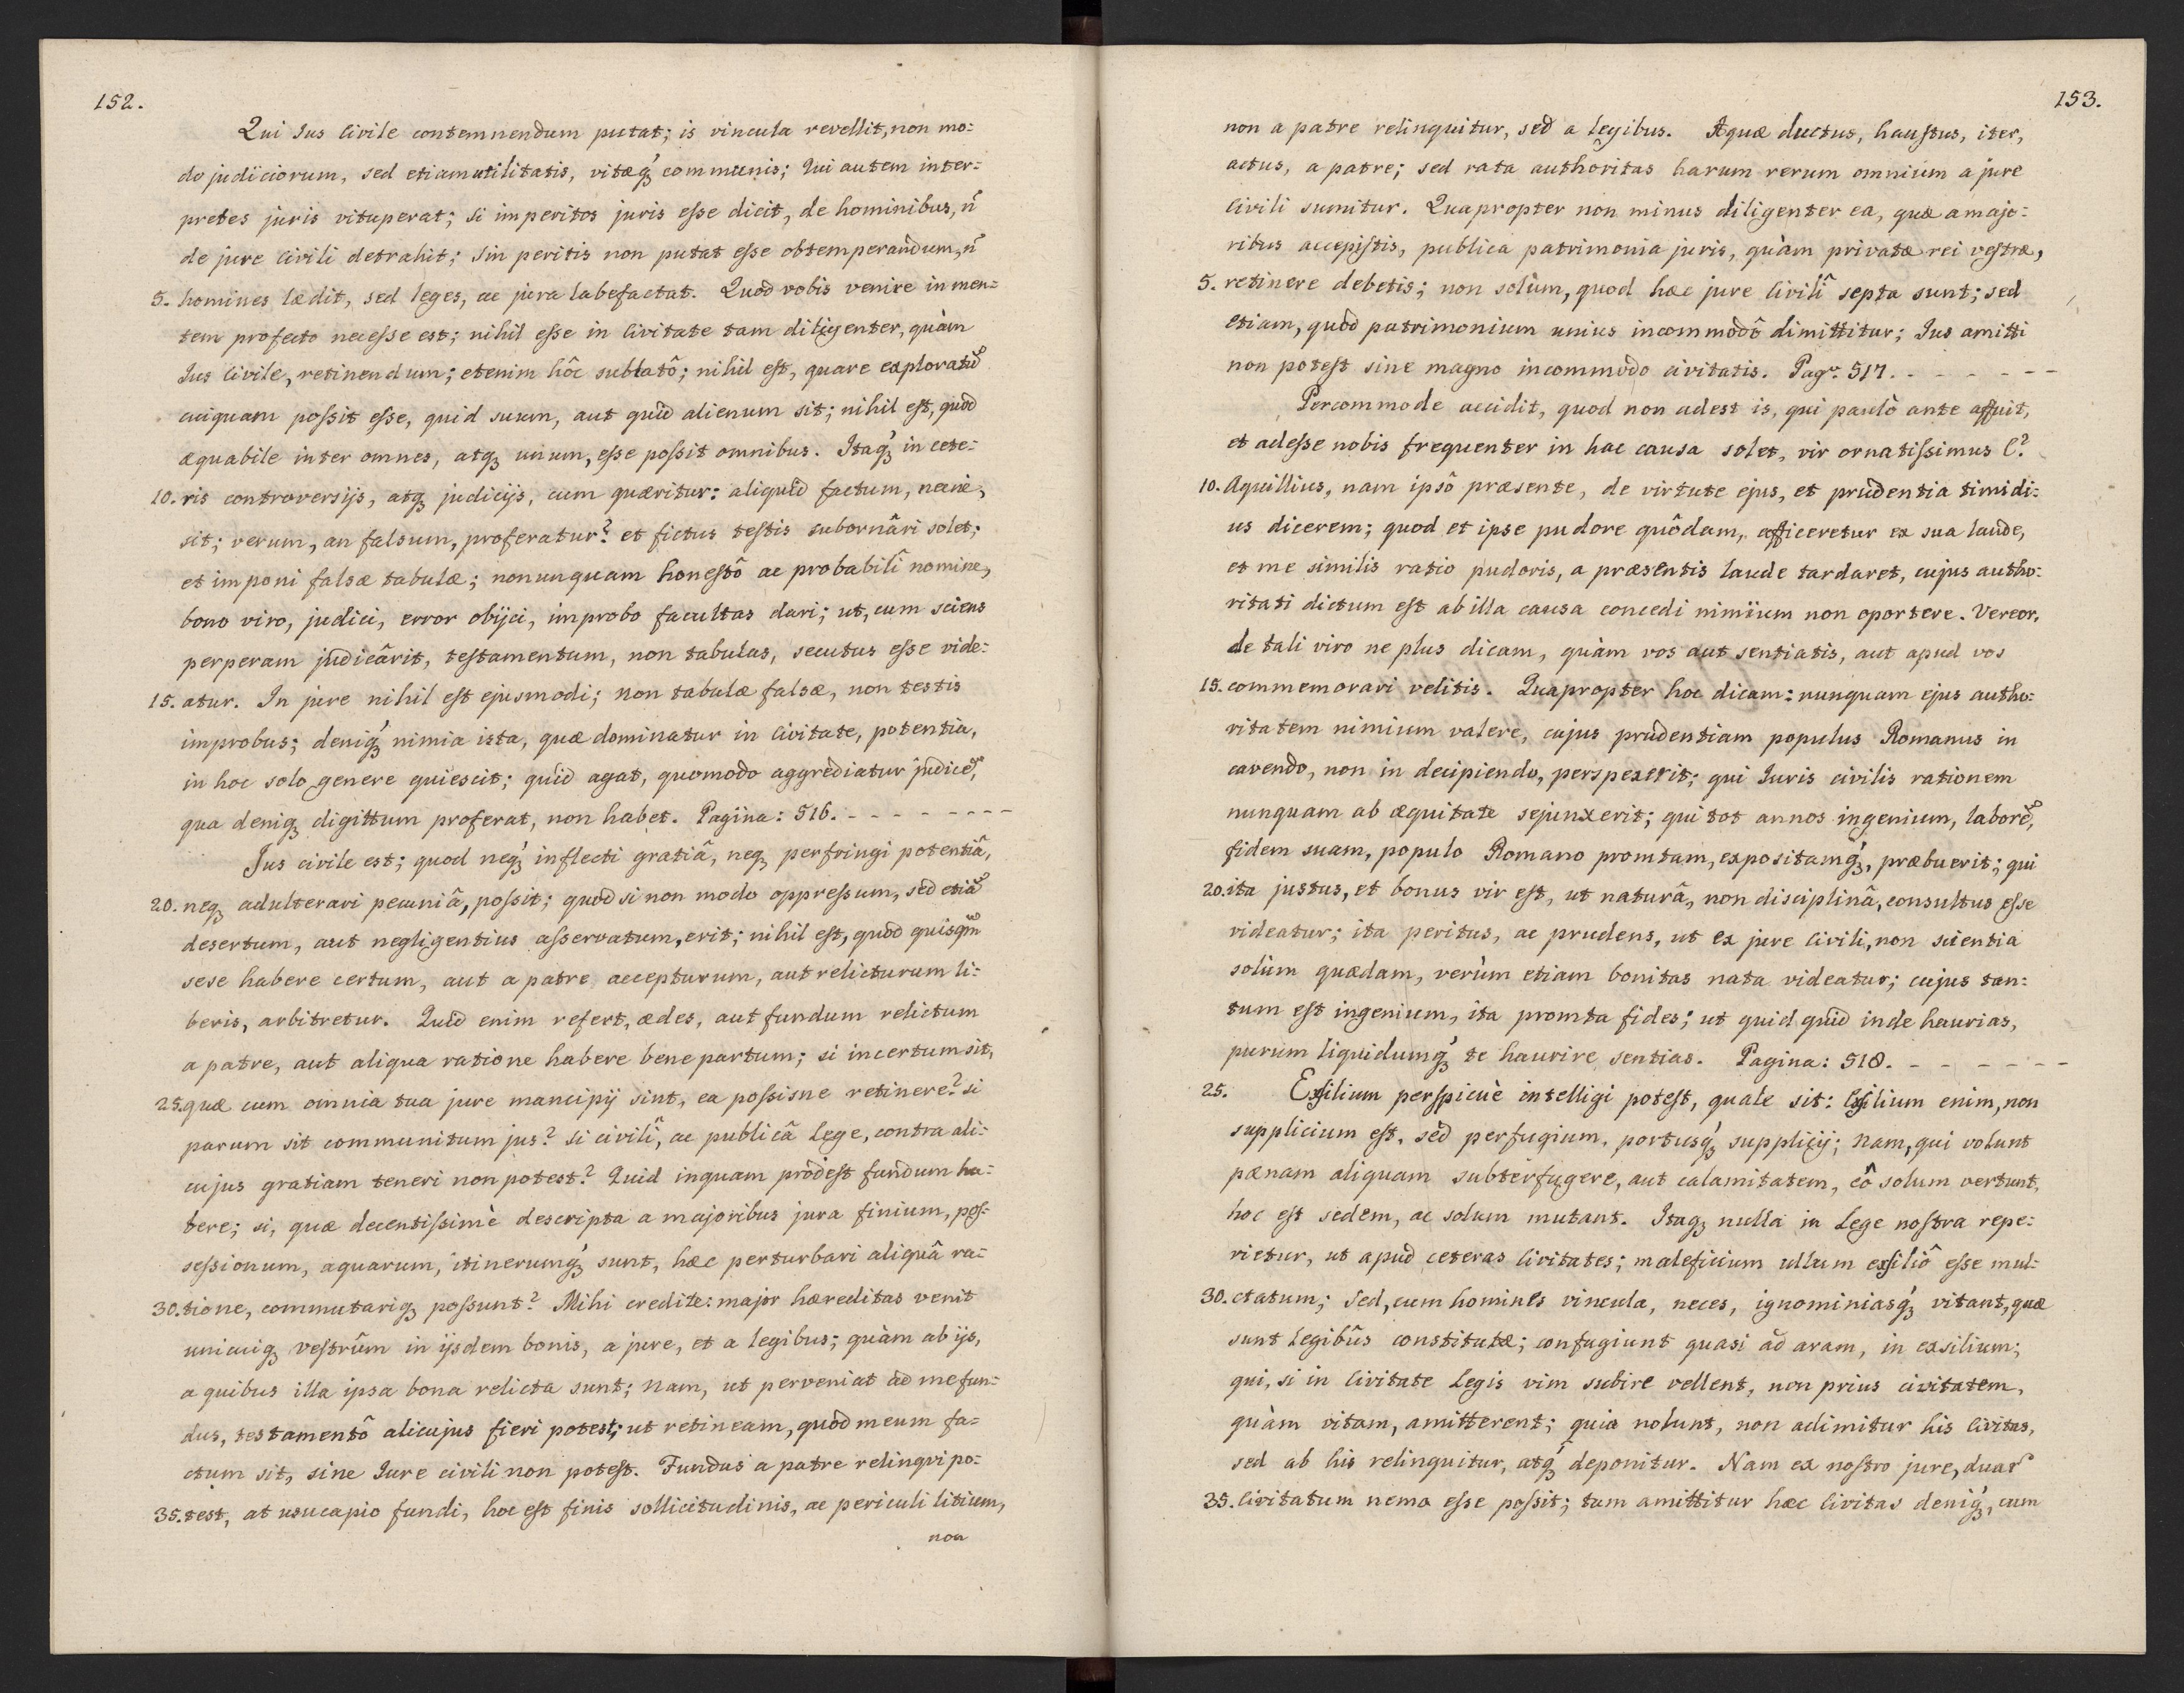 152.
Qui Jus Civile contemnendum putat; is vincula revellit, non mo=
do judiciorum, sed etiam utilitatis, vitæq́ꝫ communis; Qui autem inter=
pretes juris vituperat; si imperitos juris eſse dicit, de hominibus, ñ
de jure Civili detrahit; Sin peritis non putat eſse obtemperandum, ñ
5. homines lædit, sed leges, ac jura labefactat. Quod vobis venire in men=
tem profecto neceſse est; nihil eſse in Civitate tam diligenter, quàm
Jus Civile, retinendum; etenim hôc sublatô; nihil eſt, quare exploratũ
cuiquam poſsit eſse, quid suum, aut quid alienum sit; nihil eſt, quod
æquabile inter omnes, atqꝫ unum, eſse poſsit omnibus. Itaq́ꝫ in cete=
10. ris controversijs, atqꝫ judicijs, cum quæritur: aliquid factum, necne,
sit; verum, an falsum, proferatur? et fictus teſtis subornâri solet;
et imponi falsæ tabulæ; nonunquam honeſtô ac probabilî nomine,
bono viro, judici, error obijci, improbo facultas dari; ut, cum sciens
perperam judicârit, teſtamentum, non tabulas, secutus eſse vide=
15. atur. In jure nihil eſt ejusmodi; non tabulæ falsæ, non testis
improbus; deniq́ꝫ nimia ista, quæ dominatur in Civitate, potentia,
in hoc solo genere quiescit; quid agat, quomodo aggrediatur judicẽ,
qua deniqꝫ digittum proferat, non habet. Pagina: 516. - - - - - - - -
Jus civile est; quod neq́ꝫ inflecti gratiâ, neqꝫ perfringi potentiâ,
20. neqꝫ adulterari pecuniâ, poſsit; quod si non modo oppreſsum, sed etiã
desertum, aut negligentius aſservatum, erit; nihil eſt, quod quisqm̃
sese habere certum, aut a patre accepturum, aut relicturum li=
beris, arbitretur. Quid enim refert, ædes, aut fundum relictum
a patre, aut aliqua ratione habere bene partum; si incertum sit,
25. quæ cum omnia tua jure mancipij sint, ea poſsisne retinere? si
parum sit communitum jus? si civilî, ac publicâ Lege, contra ali=
cujus gratiam teneri non potest? Quid inquam prodeſt fundum ha=
bere; si, quæ decentiſsimè descripta a majoribus jura finium, poſ=
seſsionum, aquarum, itinerumq́ꝫ sunt, hæc perturbari aliquâ ra=
30. tione, commutariqꝫ poſsunt? Mihi credite: major hæreditas venit
unicuiqꝫ veſtrûm in ijsdem bonis, a jure, et a legibus; quàm ab ijs,
a quibus illa ipsa bona relicta sunt; nam, ut perveniat ad me fun=
dus, testamentô alicujus fieri potest; ut retineam, quod meum fa=
ctum sit, sine Jure civili non poteſt. Fundus a patre relinqvi po=
35. test, at usucapio fundi, hoc eſt finis sollicitudinis, ac periculi litium,
non
153.
non a patre relinquitur, sed a legibus. Aquæ ductus, hauſtus, iter,
actus, a patre; sed rata authoritas harum rerum omnium a jure
Civili sumitur. Quapropter non minus diligenter ea, quæ a majo=
ribus accepiſtis, publica patrimonia juris, quàm privatæ rei veſtræ,
5. retinere debetis; non solùm, quod hæc jure Civilî septa sunt; sed
etiam, quòd patrimonium unius incommodô dimittitur; Jus amitti
non poteſt sine magno incommodo civitatis. Pag. 517. - - - - - -
Percommode accidit, quod non adest is, qui paulò ante affuit,
et adeſse nobis frequenter in hac causa solet, vir ornatiſsimus C?
10. Aquillius, nam ipsô præsente, de virtute ejus, et prudentia timidi=
us dicerem; quod et ipse pudore quôdam, afficeretur ex sua laude,
et me similis ratio pudoris, a præsentis laude tardaret, cujus autho=
ritati dictum eſt ab illa causa concedi nimium non oportere. Vereor,
de tali viro ne plus dicam, quàm vos aut sentiatis, aut apud vos
15. commemorari velitis. Quapropter hoc dicam: nunquam ejus autho=
ritatem nimium valere, cujus prudentiam populus Romanus in
cavendo, non in decipiendo, perspexerit; qui Juris civilis rationem
nunquam ab æquitate sejunxerit; qui tot annos ingenium, laborẽ,
fidem suam, populo Romano promtam, expositamq́ꝫ, præbuerit; qui
20. ita justus, et bonus vir eſt, ut naturâ, non disciplinâ, consultus eſse
videatur; ita peritus, ac prudens, ut ex jure Civili, non scientia
solùm quædam, verùm etiam bonitas nata videatur; cujus tan=
tum eſt ingenium, ita promta fides; ut quid quid inde haurias,
purum liquidumq́ꝫ te haurire sentias. Pagina: 518. - - - - - -
25. Exſilium perſpicuè intelligi poteſt, quale sit: Exſilium enim, non
supplicium eſt, sed perfugium, portusq́ꝫ supplicij; Nam, qui volunt
pænam aliquam subterfugere, aut calamitatem, eô solum vertunt,
hoc eſt sedem, ac solum mutant. Itaqꝫ nulla in Lege noſtra repe=
rietur, ut apud ceteras Civitates; maleficium ullum exſiliô eſse mul=
30. ctatum; Sed, cum homines vincula, neces, ignominiasq́ꝫ vitant, quæ
sunt Legibûs constitutæ; confugiunt quasi ad aram, in exsilium;
qui, si in Civitate Legis vim subire vellent, non prius civitatem,
quàm vitam, amitterent; quia nolunt, non adimitur his Civitas,
sed ab his relinquitur, atq́ꝫ deponitur. Nam ex noſtro jure, duar̃
35. Civitatum nemo eſse poſsit; tum amittitur hæc Civitas deniq́ꝫ, cum